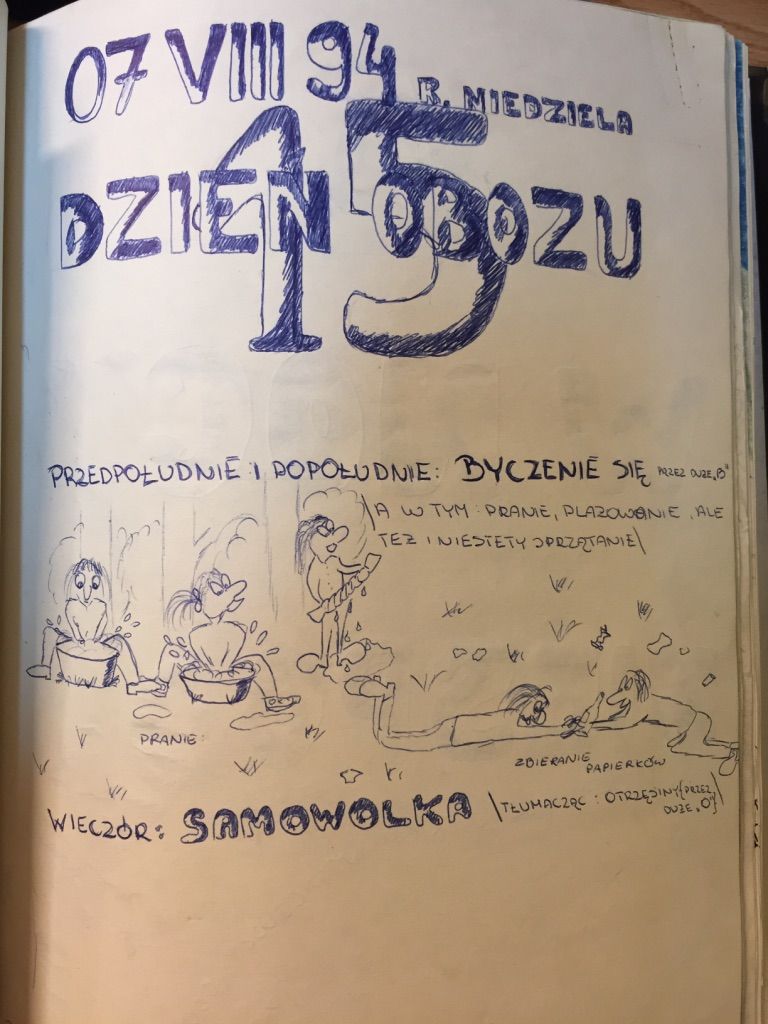 07 VIII 94 R. NIEDZIELA
15
DZIEŃ OBOZU
PRZEDPOŁUDNIE I POPOŁUDNIE: BYCZENIE SIĘ PRZEZ DUŻE „B”
\A W TYM: PRANIE, PLAŻOWANIE, ALE
TEŻ I NIESTETY SPRZĄTANIE\
PRANIE:
ZBIERANIE
PAPIERKÓW
WIECZÓR: SAMOWOLKA \TŁUMACZĄC: OTRZĘSINY{PRZEZ
DUŻE „O”}\